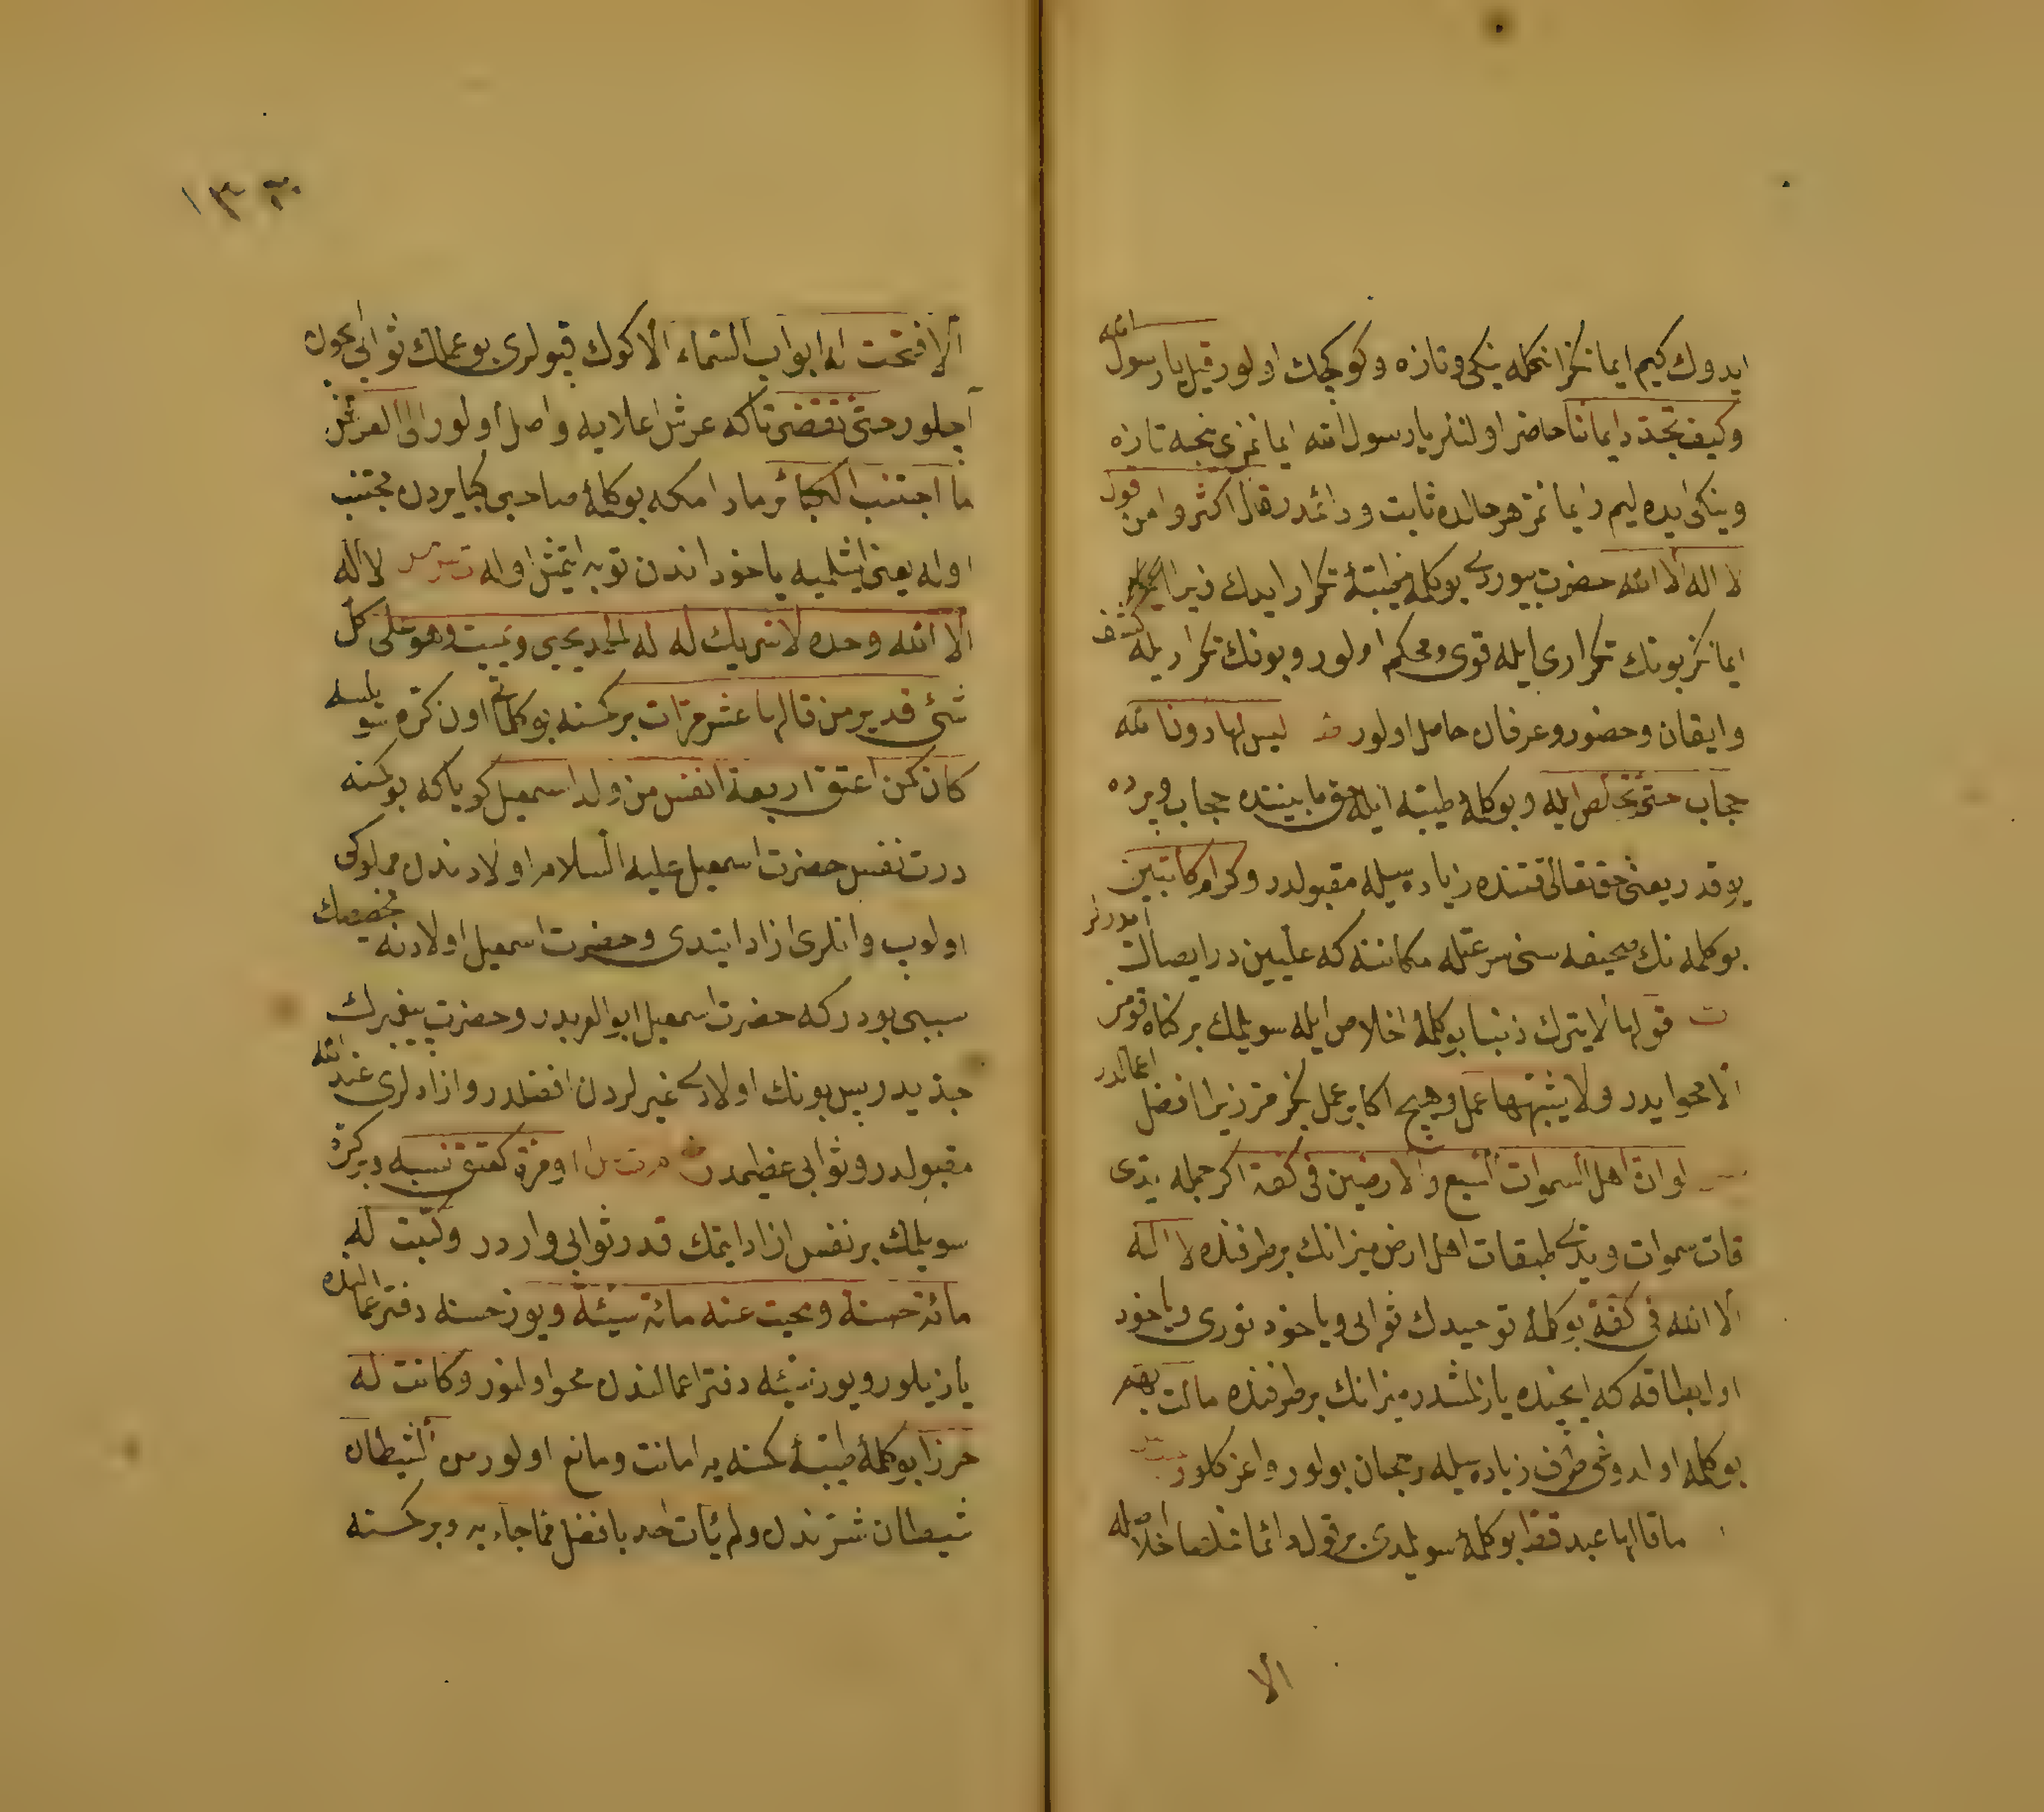 ايدوك كيم ايمانكز انكله ينكى و تازه و كوكجك اولور قيل يا رسول الله
وكيف نجدد ايماننا حاضر اولنلر يا رسول الله ايمانمزى نيجه تازه
وينكى ايده ليم و ايمانمز هر حالده ثابت و دائمدر قال اكثروا من قول
لا اله الا الله حضرت بيوردى بوكلمه طيبهٔ تكرار ايدك زيرا
ايمانكز بونك تكرارى ايله قوى و محكم اولور و بونك تكراريله كشف
وايقان و حضور و عرفان حاصل اولور ليس لها دون الله
حجاب حتى تخلص اليه و بوكلمهٔ طيبه ايله حق مابيننده حجاب و پرده
يوقدر يعنى حق تعالى قتنده زياده سيله مقبولدر و كرام كاتبين
بوكلمه نك صحيفه سنى سرعتله مكاننه كه عليين در ايصال ايدرلر
ت قولها لا يترك ذنبا بوكلمهٔ اخلاص ايله سويلمك بر كناه قومز
الا محو ايدر ولا يشبهها عمل و هيچ اكا بر عمل بكزمز زيرا افضل اعمالدر
لو ان اهل السموات السبع والارضين فى كفة اكر جمله يدى
قات سموات و يدى طبقات اهل ارض ميزانك بر طرفنده لا اله
الا الله فى كفة بوكلمهٔ توحيدك ثوابى و ياخود نورى و ياخود
اول بطاقه كه ايچنده يازلمشدر ميزانك بر طرفنده مالت بهم
بوكلمه اولدوغى طرف زياده سيله رجحان بولور و اغر كلور
ما قالها عبد قط بوكلمهٔ سويلمدى بر قول دائما مخلصا اخلاصله
الا
١٣٠
الا فتحت له ابواب السماء الا كوك قپولرى بو عملك ثوابى ايچون
آچلور حتى تفضى تاكه عرش اعلايه واصل اولور الى العرش
ما اجتنب الكبائر مادامكه بوكلمهٔ صاحبى كبايردن مجتنب
اوله يعنى ايشلميه ياخود اندن توبه ايتمش اوله لا اله
الا الله وحده لا شريك له له الحمد يحيى ويميت وهو على كل
شئ قدير من قالها عشر مرات بر كمسنه بوكلماتى اون كره سويلسه
كان كمن اعتق اربعة انفس من ولد اسمعيل كوياكه بوكمسنه
درت نفس حضرت اسمعيل عليه السلام اولادندن مملوكى
اولوب و انلرى ازاد ايتدى و حضرت اسمعيل اولادنه تخصيصك
سببى بودر كه حضرت اسمعيل ابو العربدر و حضرت پيغمبرك
جدّيدر پس بونك اولادى غيرلردن افضلدر و ازادلرى عند الله
مقبولدر و ثوابى عظيمدر او مرة كعتق نسمة و بر كره
سويلمك بر نفس ازاد ايتمك قدر ثوابى واردر وكتبت له
مائة حسنة ومحيت عنه مائة سيئة و يوز حسنه دفتر اعمالنده
يازيلور و يوز سيئه دفتر اعمالندن محو اولنور وكانت له
حرزا بوكلمهٔ طيبهٔ كمسنه يه امانت و مانع اولور من الشيطان
شيطان شرندن ولم يأت احد بافضل مما جاء به و بر كمسنه